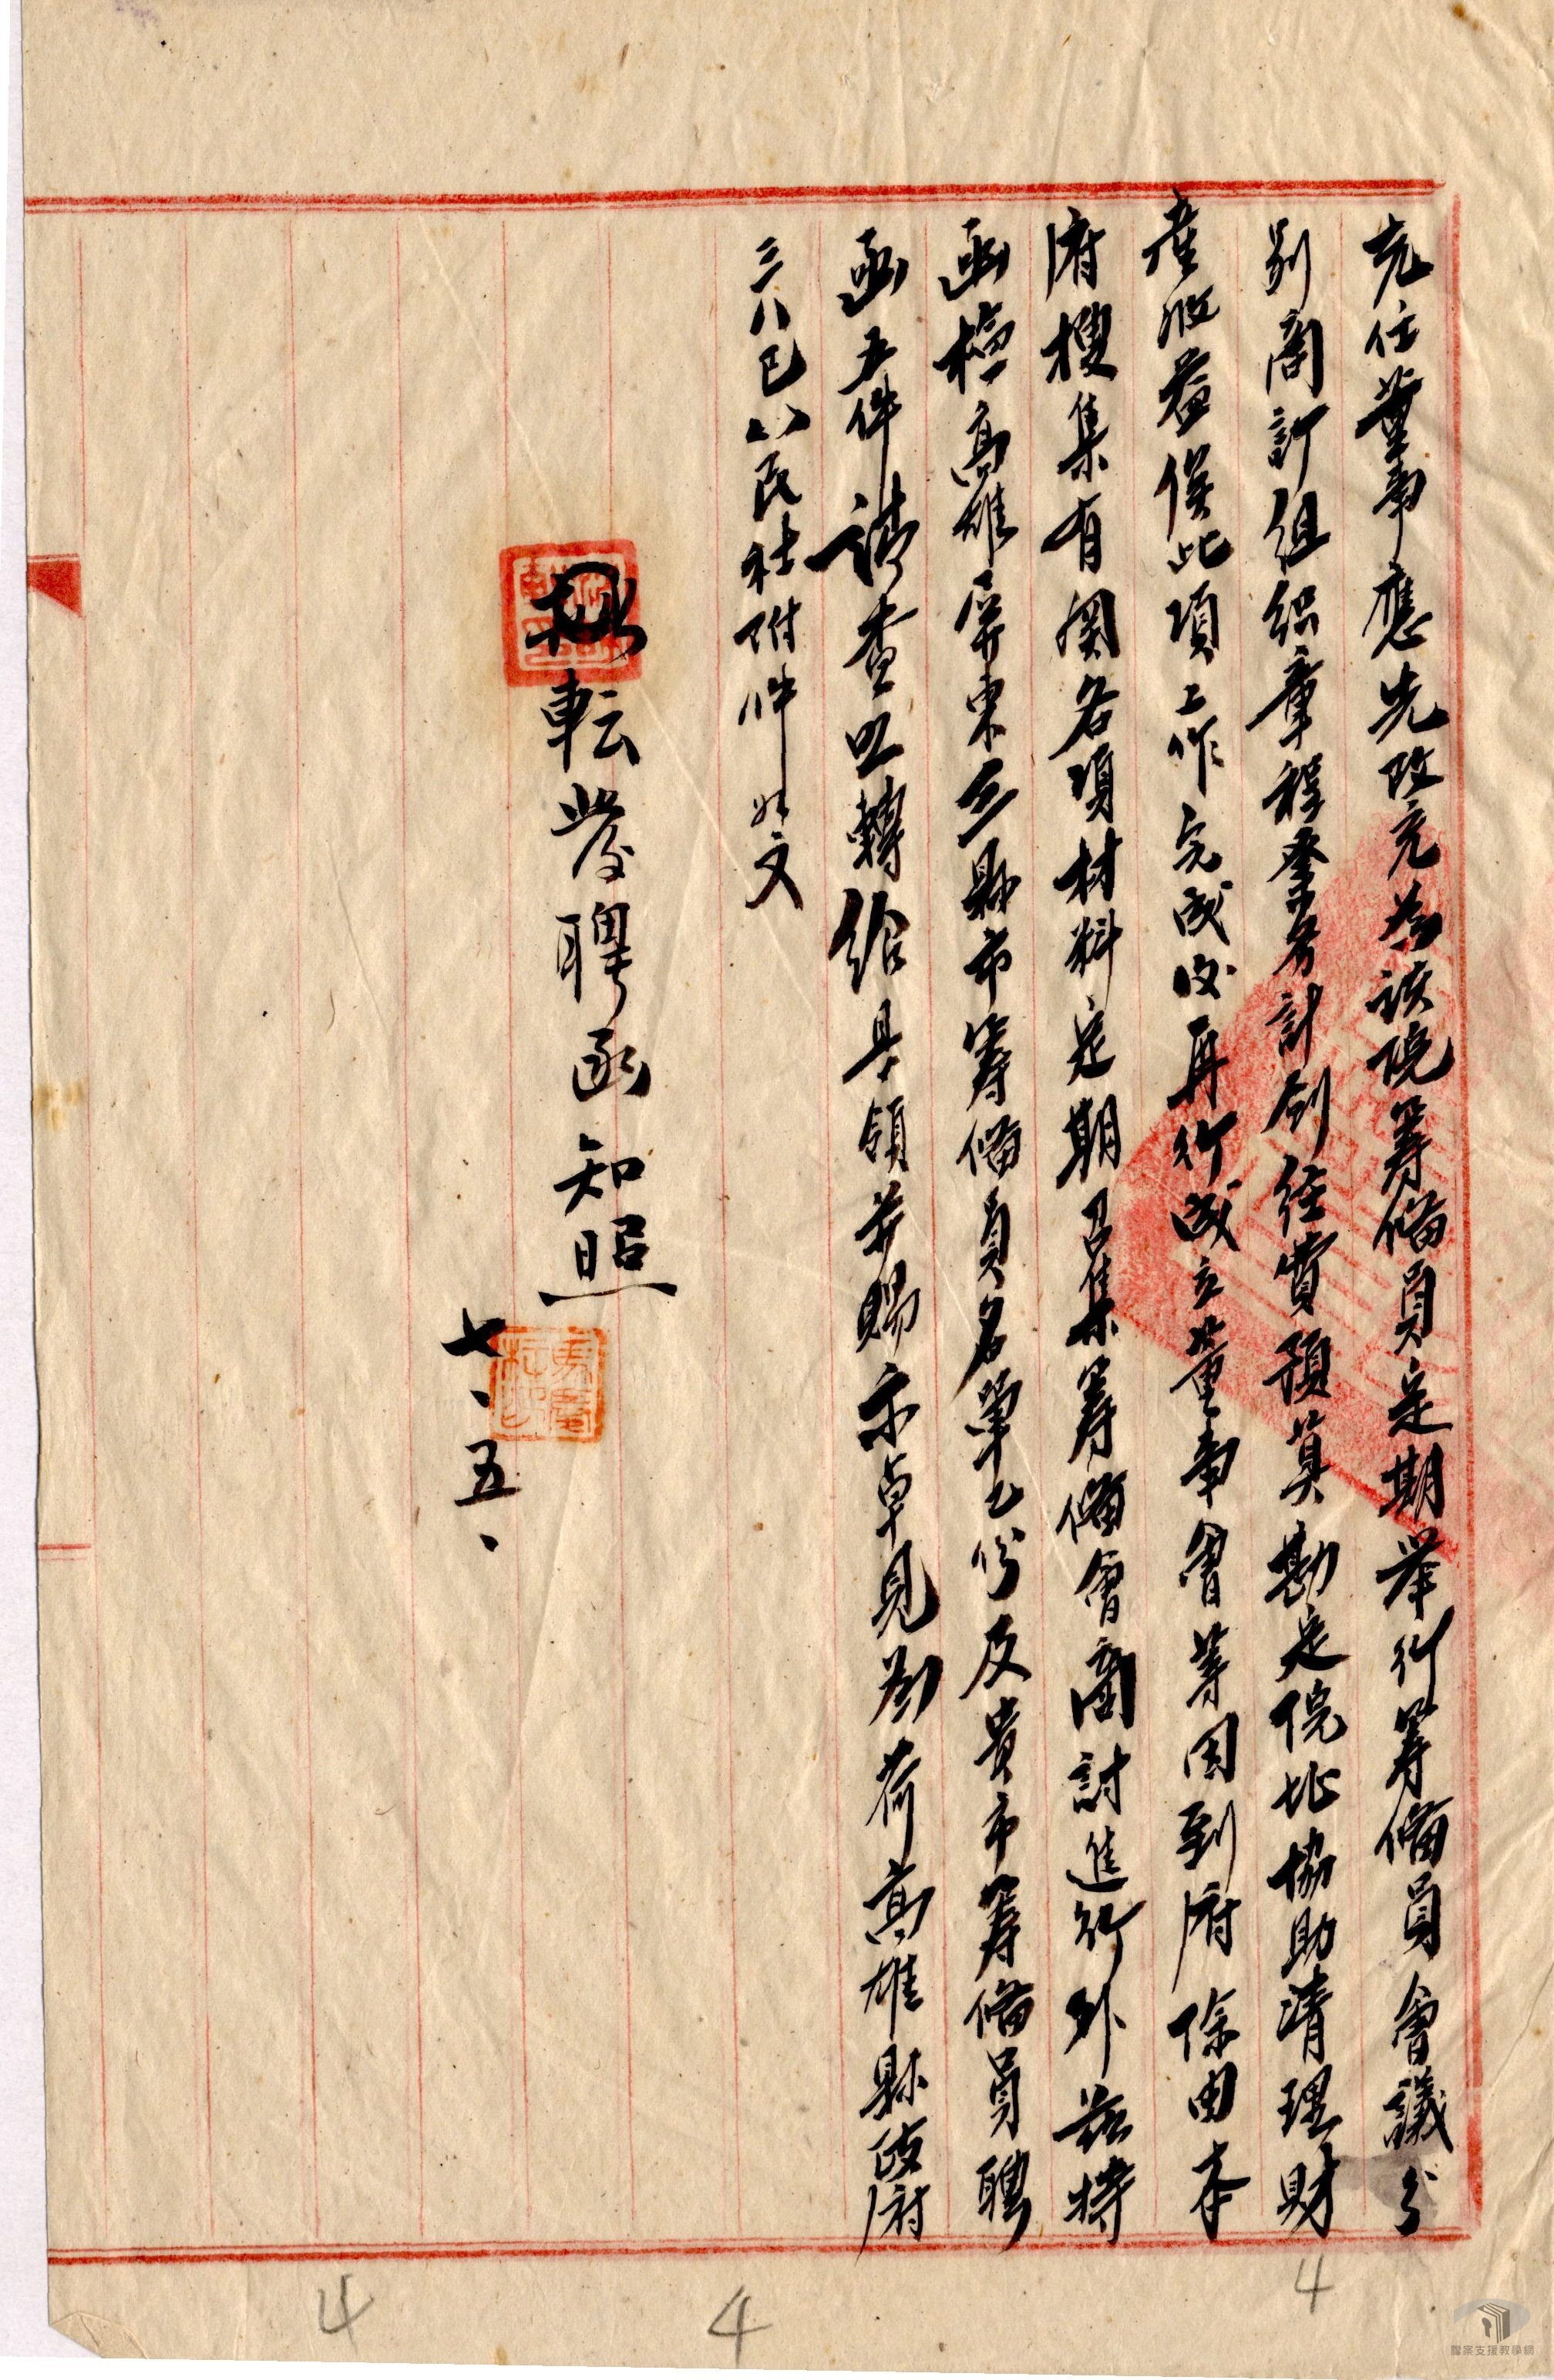 充任董事應先改充為該院籌備員定期举行籌備員會議分
別商訂組織章程業務計劃經費預算勘定院址協助清理財
產收益俟此項工作完成後再行成立董事會等因到府除由本
府搜集有関各項材料定期召集籌備會商討進行外茲特
函檢高雄屏東三縣市籌備員名單乙份及貴市籌備員聘
函五件請查照轉給具領并賜示卓見為荷高雄縣政府
三八巳八民社附件如文
転發聘函知照
七、五、
4
4
4
檔案支援教學網